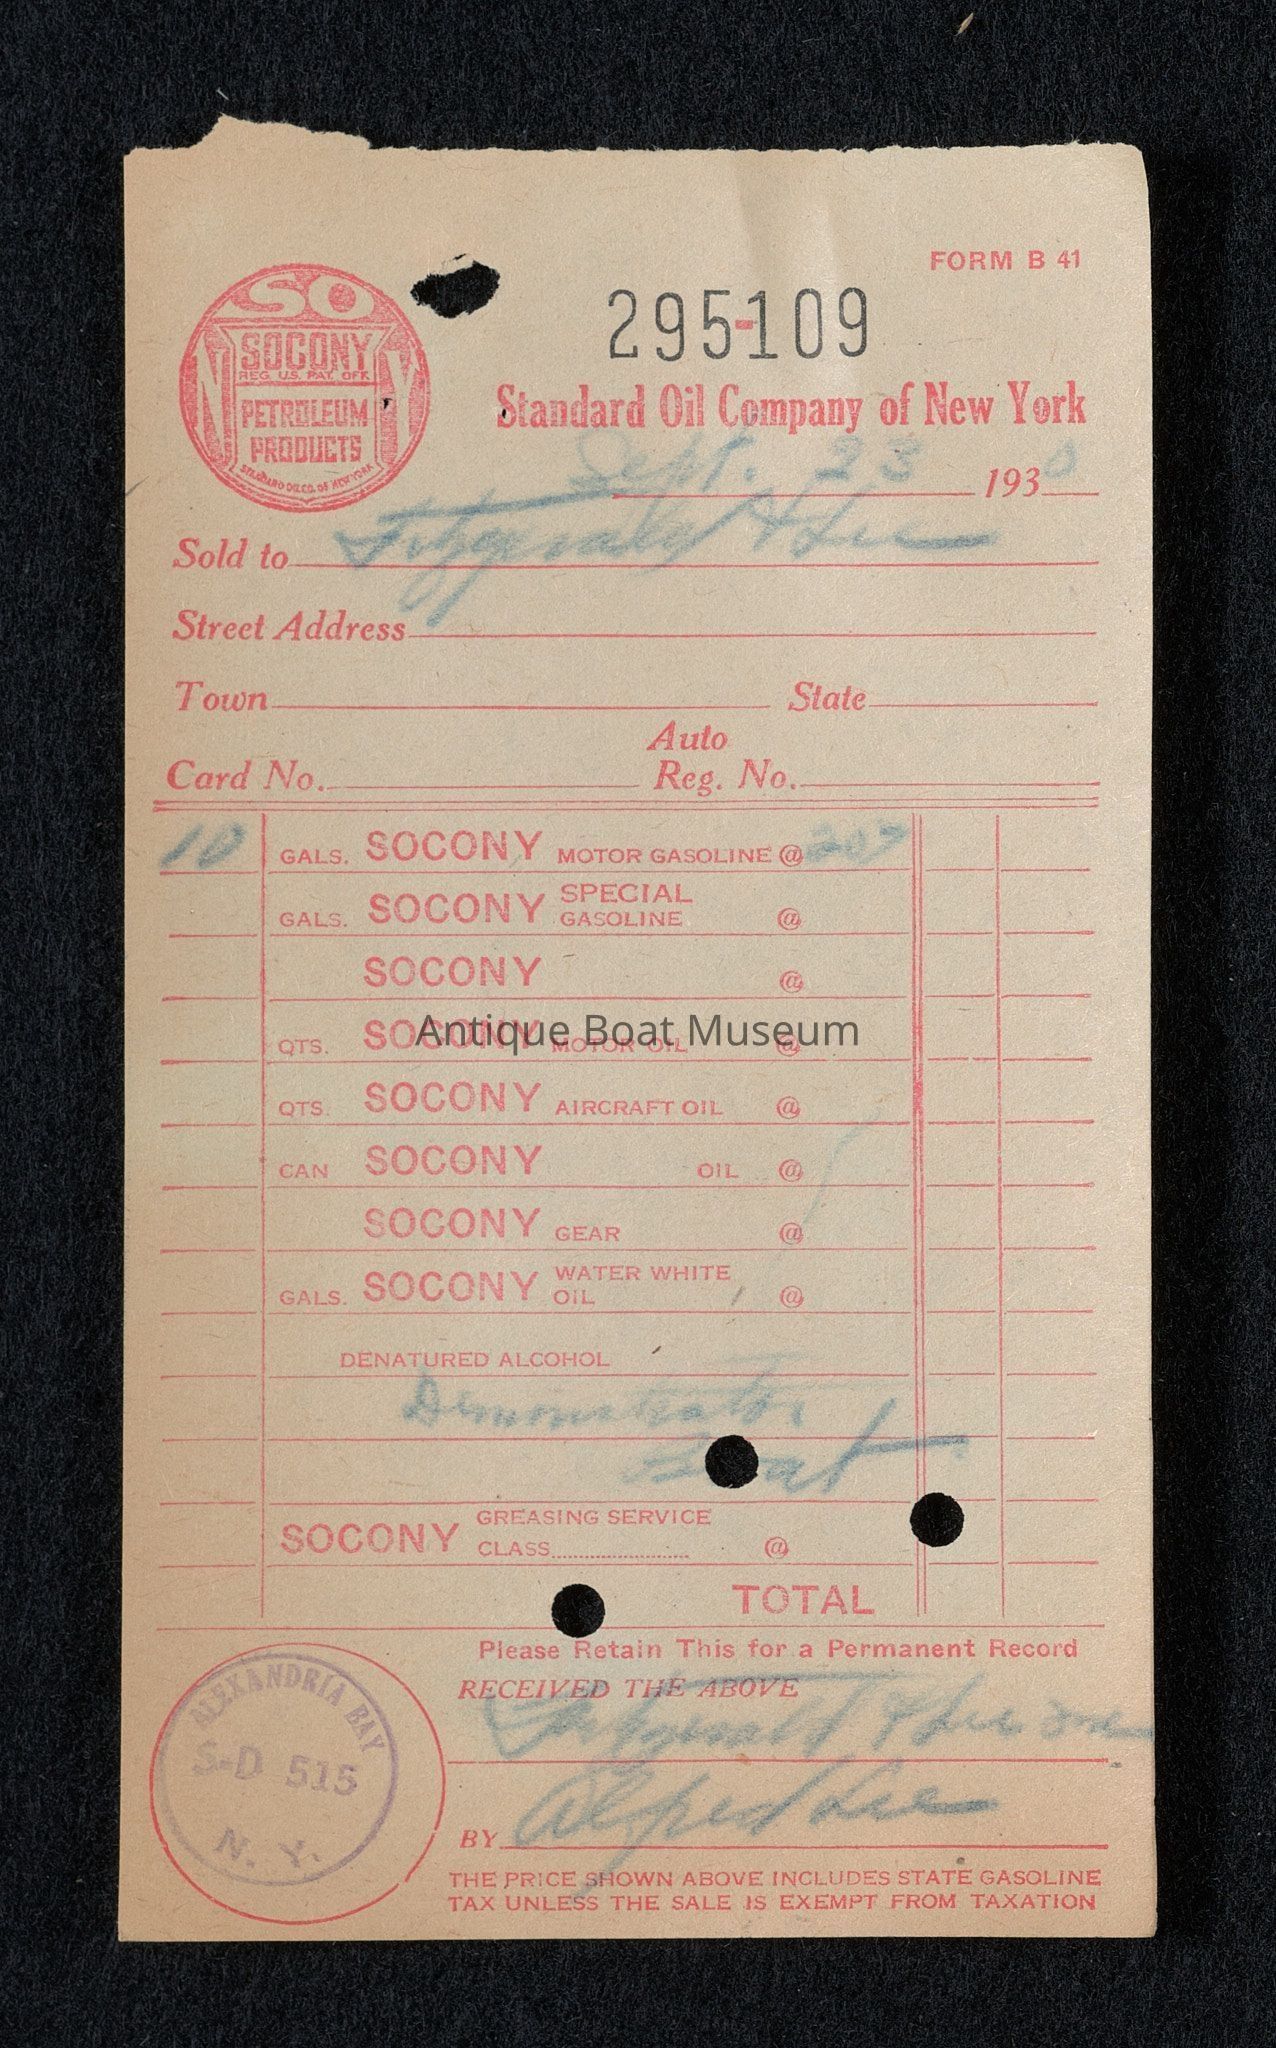 FORM B 41
SO
NY
SOCONY
REG. U.S. PAT. OFF.
PETROLEUM
PRODUCTS
STANDARD OIL CO. OF NEW YORK
295-109
Standard Oil Company of New York
Sept. 23 1930
Sold to Fitzgerald & Lee
Street Address
Town State
Auto
Card No. Reg. No.
10 GALS. SOCONY MOTOR GASOLINE @ 207
GALS. SOCONY SPECIAL GASOLINE @
SOCONY @
QTS. SOCONY MOTOR OIL @
Antique Boat Museum
QTS. SOCONY AIRCRAFT OIL @
CAN SOCONY OIL @
SOCONY GEAR @
GALS. SOCONY WATER WHITE OIL @
DENATURED ALCOHOL
Demonstrator
Boat
SOCONY GREASING SERVICE
CLASS @
TOTAL
Please Retain This for a Permanent Record
RECEIVED THE ABOVE
Fitzgerald & Lee Inc
BY Alfred Lee
ALEXANDRIA BAY
S-D 515
N. Y.
THE PRICE SHOWN ABOVE INCLUDES STATE GASOLINE
TAX UNLESS THE SALE IS EXEMPT FROM TAXATION